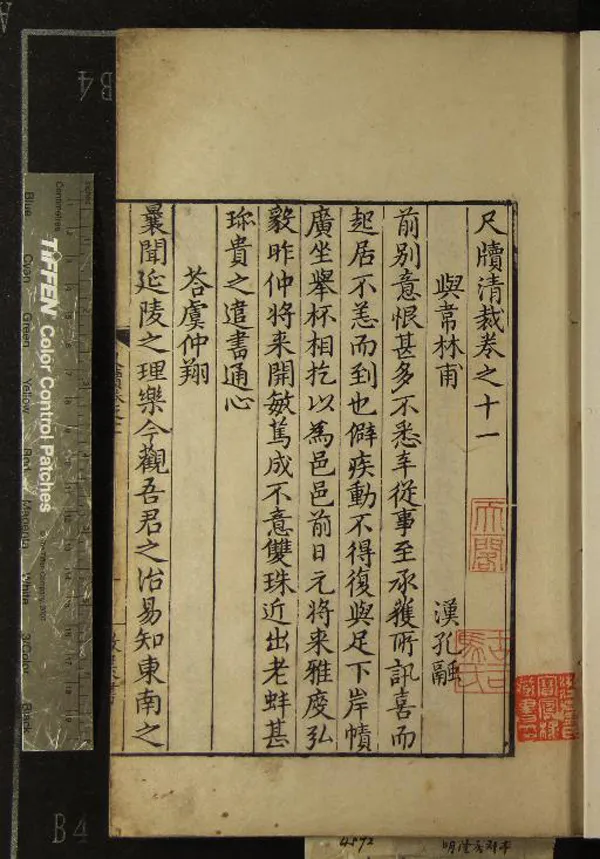 尺牘清裁卷之十一
與韋林甫 漢孔融
前別意恨甚多不悉幸從事至承獲所訊喜而
起居不恙而到也僻疾動不得復與足下岸幘
廣坐舉杯相以為邑邑前日元將来雅度弘
毅昨仲將来開敏篤成不意雙珠近出老蚌甚
珎貴之遣書通心
荅虞仲翔
曩聞延陵之理樂今觀吾君之治易知東南之
天閣
古司馬氏
B4
Centimetres
TIFFEN Color Control Patches
Blue
Cyan
Green
Yellow
Red
Magenta
White
3/Color
Black
B4